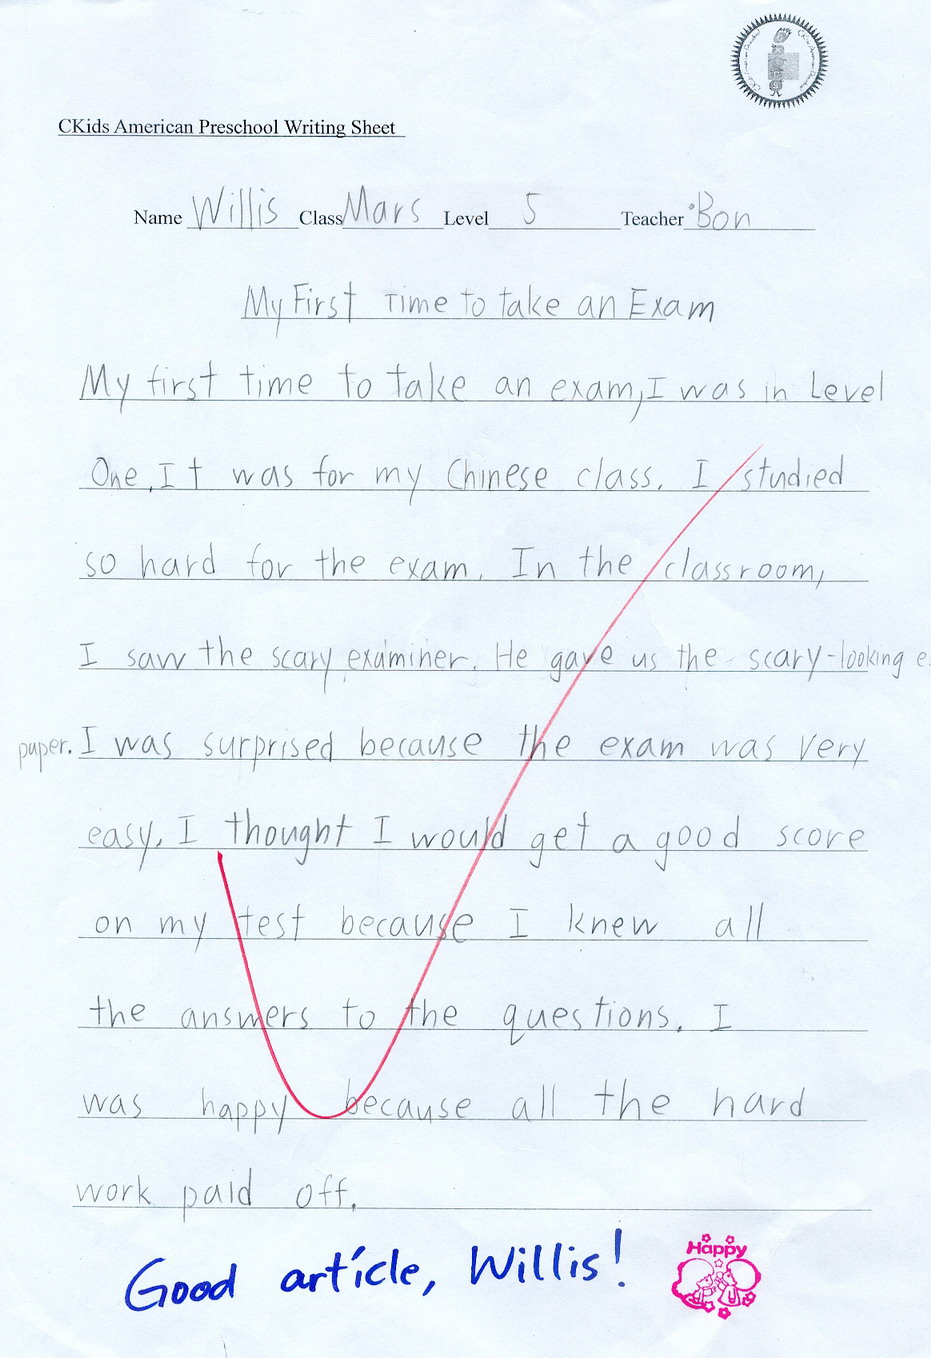 CKids American Preschool Writing Sheet
Name Willis Class Mars Level 5 Teacher Bon
My First Time to take an Exam
My first time to take an exam, I was in Level
One. It was for my Chinese class. I studied
so hard for the exam. In the classroom,
I saw the scary examiner. He gave us the scary-looking
paper. I was surprised because the exam was very
easy. I thought I would get a good score
on my test because I knew all
the answers to the questions. I
was happy because all the hard
work paid off.
Good article, Willis!
Happy